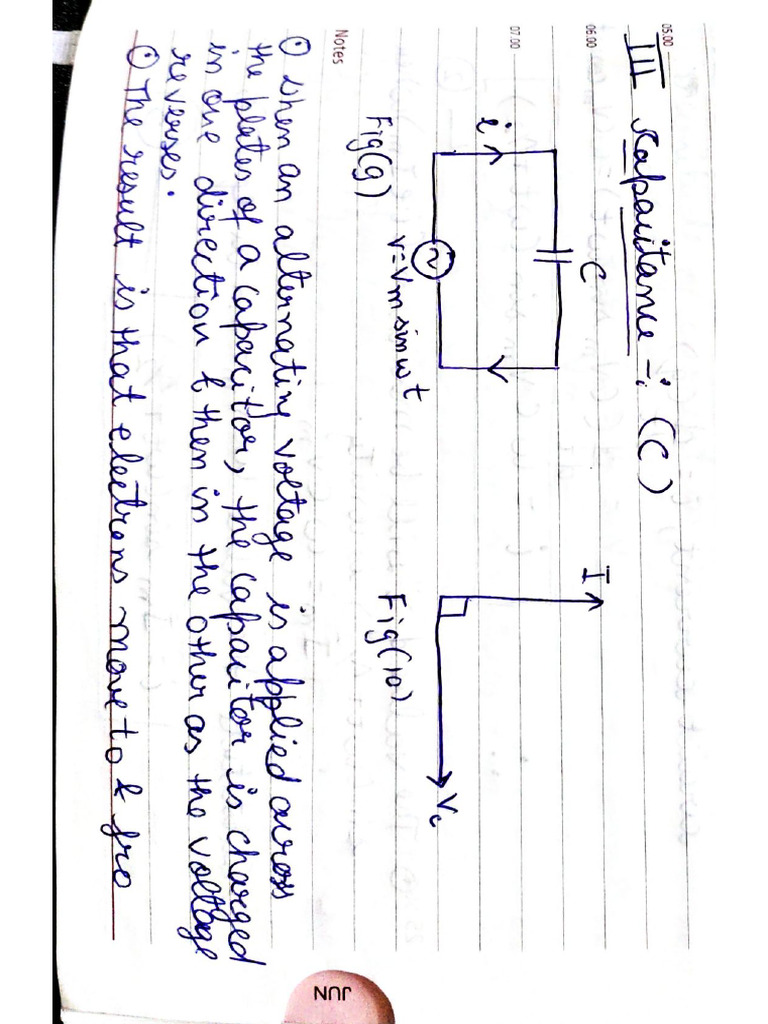 05.00
III Capacitance -: (C)
06.00
C
I
i
07.00
v = Vm sin ωt
Vc
Fig(9)
Fig(10)
Notes
⊙ When an alternating voltage is applied across
the plates of a capacitor, the capacitor is charged
in one direction & then in the other as the voltage
reverses.
⊙ The result is that electrons move to & fro
JUN